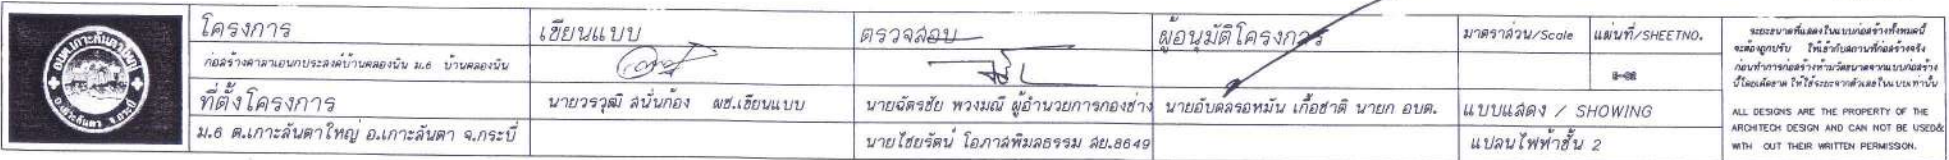 อบต.เกาะลันตาใหญ่
อ.เกาะลันตา จ.กระบี่
โครงการ
ก่อสร้างศาลาเอนกประสงค์บ้านคลองนิน ม.6 บ้านคลองนิน
ที่ตั้งโครงการ
ม.6 ต.เกาะลันตาใหญ่ อ.เกาะลันตา จ.กระบี่
เขียนแบบ
นายวรวุฒิ สนั่นก้อง ผช.เขียนแบบ
ตรวจสอบ
นายฉัตรชัย พวงมณี ผู้อำนวยการกองช่าง
นายไชยรัตน์ โอภาสพิมลธรรม สย.8649
ผู้อนุมัติโครงการ
นายอับดลรอหมัน เกื้อชาติ นายก อบต.
มาตราส่วน/Scale
แผ่นที่/SHEETNO.
แบบแสดง / SHOWING
แปลนไฟฟ้าชั้น 2
ระยะขนาดที่แสดงในแบบก่อสร้างทั้งหมดนี้
จะต้องถูกปรับ ให้เข้ากับสถานที่ก่อสร้างจริง
ก่อนทำการก่อสร้างห้ามวัดขนาดจากแบบก่อสร้าง
นี้โดยเด็ดขาด ให้ใช้ระยะจากตัวเลขในแบบเท่านั้น
ALL DESIGNS ARE THE PROPERTY OF THE
ARCHITECH DESIGN AND CAN NOT BE USED&
WITH OUT THEIR WRITTEN PERMISSION.